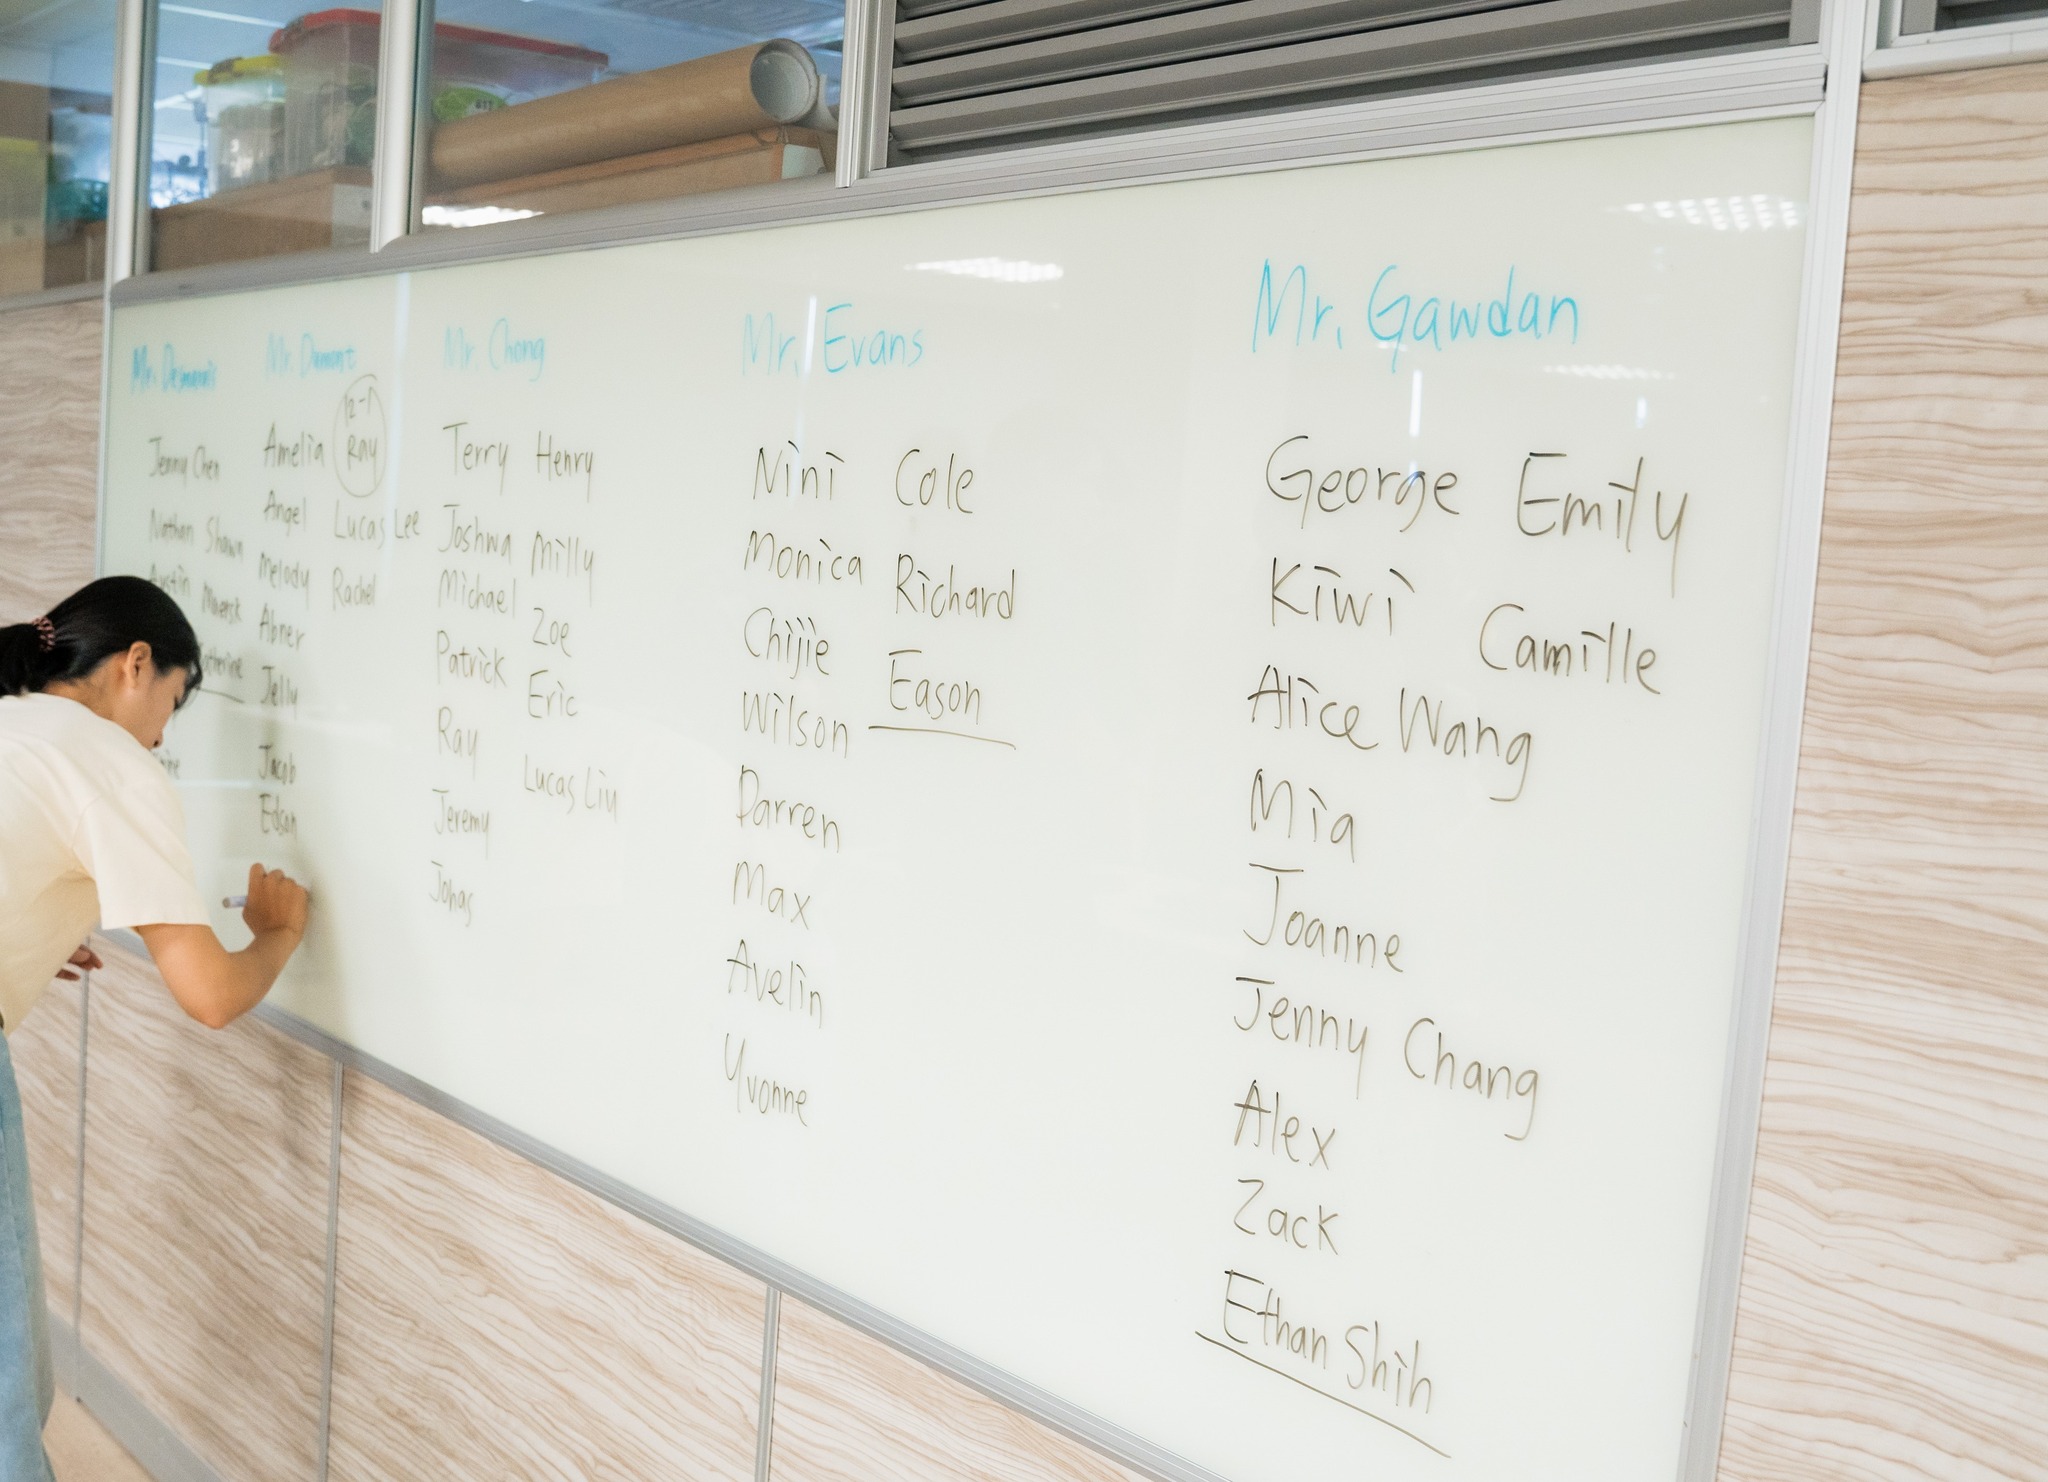 Mr. Desmarais
Jenny Chen
Nathan Shawn
Austin Maverick
Mr. Dumont
12-1
Amelia Ray
Angel Lucas Lee
Melody Rachel
Abner
Jelly
Jacob
Edson
Mr. Chong
Terry Henry
Joshwa Milly
Michael Zoe
Patrick Eric
Ray Lucas Liu
Jeremy
Johas
Mr. Evans
Nini Cole
Monica Richard
Chijie Eason
Wilson
Darren
Max
Avelin
Yvonne
Mr. Gawdan
George Emily
Kiwi Camille
Alice Wang
Mia
Joanne
Jenny Chang
Alex
Zack
Ethan Shih